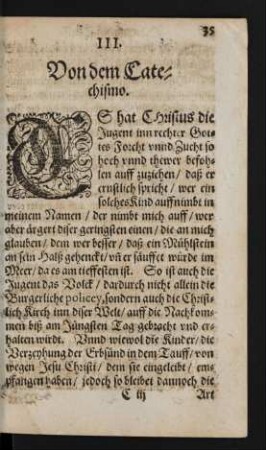 35
III.
Von dem Cate-
chismo.
ES hat CHristus die
Jugent inn rechter Got-
tes Forcht vnnd Zucht so
hoch vnnd thewer befoh-
len auff zuziehen / daß er
ernstlich spricht / wer ein
solches Kind auffnimbt in
meinem Namen / der nimbt mich auff / wer
aber ärgert diser geringsten einen / die an mich
glauben / dem wer besser / daß ein Mühlstein
an sein Halß gehenckt / vñ er säuffet würde im
Meer / da es am tieffesten ist. So ist auch die
Jugent das Volck / dardurch nicht allein die
Burgerliche policey, sondern auch die Christ-
lich Kirch inn diser Welt / auff die Nachkom-
men biß am Jüngsten Tag gebracht vnd er-
halten wirdt. Vnnd wiewol die Kinder / die
Verzeyhung der Erbsünd in dem Tauff / von
wegen Jesu Christi / dem sie eingeleibt / em-
pfangen haben / jedoch so bleibet dannoch die
C iij Art